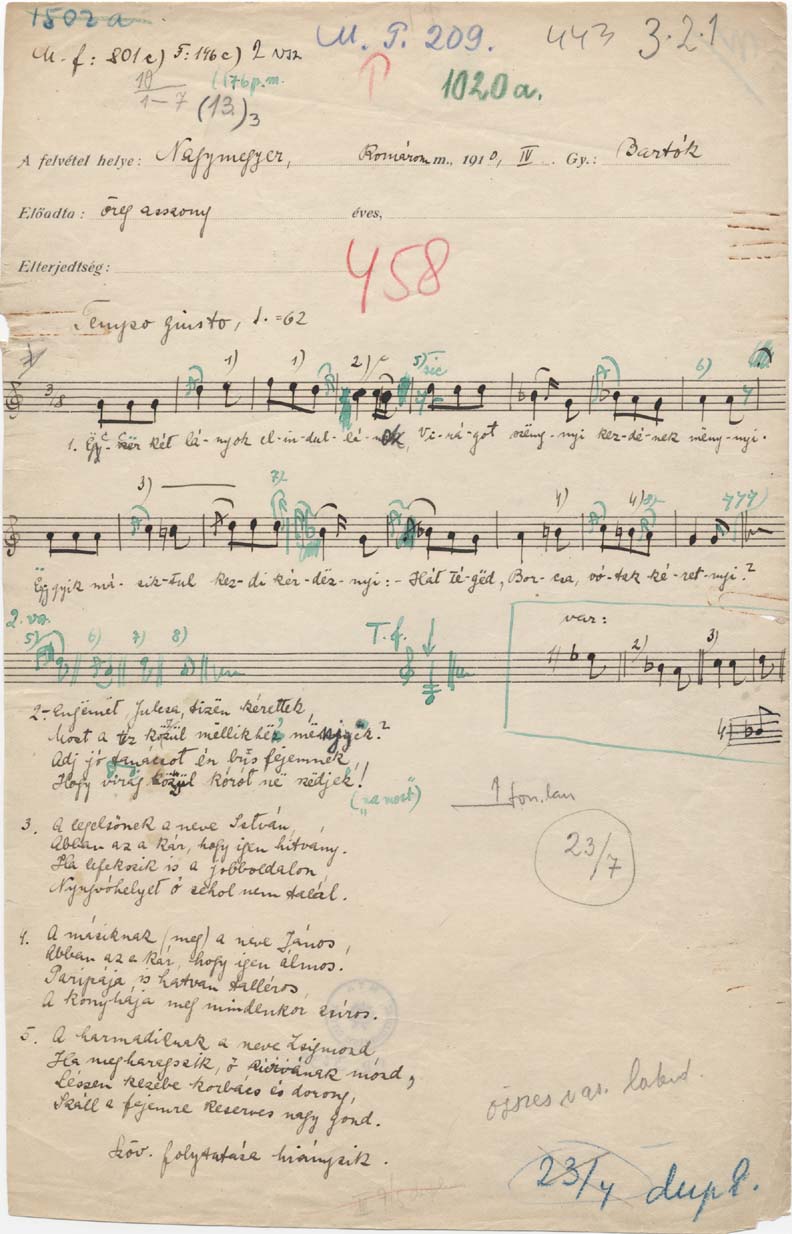 1502a
M. f: 801c) F: 146c) 2 vsz
M. P. 209.
443
3.2.1
10
1-7
(176 p.m.
(13.)3
1020a.
A felvétel helye: Nagymegyer, Komárom m., 1910, IV. Gy.: Bartók
Előadta: öreg asszony éves,
Elterjedtség:
458
Tempo giusto, ♩. =62
1) 1) 2) 5) sic 6)
3/8
1. két lá-nyok el-in-dul-lá-nok, Vi-rágot szëny-nyi kez-dé-nek mëny-nyi.
3) 7) 4) 4) 8)
Eggyik má-sik-tul kez-di kér-dëz-nyi: - Hát té-gëd, Bor-csa, vó-tak ké-ret-nyi?
2. vsz.
5) 6) 7) 8)
T. f.
var:
1) 2) 3)
4)
2. Engëmët, Julcsa, tizën kérettek,
Most a tíz közül mellikhëz mënnyek?
Adj jó tanácsot én bús fejemnek,
Hogy virág közül kórót në szëdjek!
("na most")
3. A legelsőnek a neve István,
Abban az a kár, hogy igen hitvány.
Ha lefekszik is a jobboldalon,
Nyugvóhelyet ő sehol nem talál.
23/7
4. A másiknak (meg) a neve János,
Abban az a kár, hogy igen álmos.
Paripája is hatvan talléros
A konyhája meg mindenkor zsíros.
5. A harmadiknak a neve Zsigmond
Ha megharagszik, ő mond,
Lészen kezébe korbács és dorong,
Száll a fejemre keserves nagy gond.
Szöv. folytatása hiányzik.
összes var.
23/7 dupl.